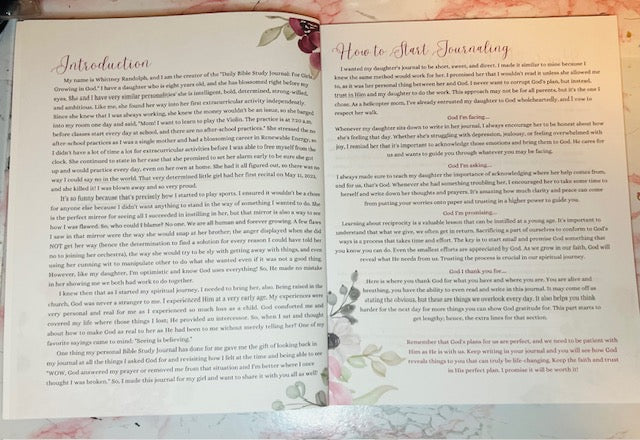 Introduction
My name is Whitney Randolph, and I am the creator of the "Daily Bible Study Journal: For Girls
Growing in God." I have a daughter who is eight years old, and she has blossomed right before my
eyes. She and I have very similar personalities; she is intelligent, bold, determined, strong-willed,
and ambitious. Like me, she found her way into her first extracurricular activity independently.
Since she knew that I was always working, she knew the money wouldn't be an issue, so she barged
into my room one day and said, "Mom! I want to learn to play the Violin. The practice is at 7:20 a.m.
before classes start every day at school, and there are no after-school practices." She stressed the no
after-school practices as I was a single mother and had a blooming career in Renewable Energy, so
I didn't have a lot of time a lot for extracurricular activities before I was able to free myself from the
clock. She continued to state in her case that she promised to set her alarm early to be sure she got
up and would practice every day, even on her own at home. She had it all figured out, so there was no
way I could say no in the end. That very determined little girl had her first recital on May 11, 2022,
and she killed it! I was blown away and so very proud.
It's so funny because that's precisely how I started to play sports. I ensured it wouldn't be a chore
for anyone else because I didn't want anything to stand in the way of something I wanted to do. She
is the perfect mirror for seeing all I succeeded in instilling in her, but that mirror is also a way to see
how I was flawed. So, who could I blame? No one. We are all human and forever growing. A few flaws
I saw in that mirror were the way she would snap at her brother; the anger displayed when she did
NOT get her way (hence the determination to find a solution for every reason I could have told her
no to joining her orchestra), the way she would try to be sly with getting away with things, and even
using her cunning wit to manipulate other to do what she wanted even if it was not a good thing.
However, like my daughter, I'm optimistic and know God uses everything! So, He made no mistake
in her showing me we both had work to do together.
I knew then that as I started my spiritual journey, I needed to bring her, also. Being raised in the
church, God was never a stranger to me. I experienced Him at a very early age. My experiences were
very personal and real for me as I experienced so much loss as a child. God comforted me and
covered my life where those things I lost, He provided an intercessor. So, when I sat and thought
about how to make God as real to her as He had been to me without merely telling her? One of my
favorite sayings came to mind: "Seeing is believing."
One thing my personal Bible Study Journal has done for me gave me the gift of looking back in
my journal at all the things I asked God for and revisiting how I felt at the time and being able to see
"WOW, God answered my prayer or removed me from that situation and I'm better where I once
thought I was broken." So, I made this journal for my girl and want to share it with you all as well!
How to Start Journaling
I wanted my daughter's journal to be short, sweet, and direct. I made it similar to mine because I
knew the same method would work for her. I promised her that I wouldn't read it unless she allowed me
to, as it was her personal thing between her and God. I never want to corrupt God's plan, but instead,
trust in Him and my daughter to do the work. This approach may not be for all parents, but it's the one I
chose. As a helicopter mom, I've already entrusted my daughter to God wholeheartedly, and I vow to
respect her walk.
God I'm facing...
Whenever my daughter sits down to write in her journal, I always encourage her to be honest about how
she's feeling that day. Whether she's struggling with depression, jealousy, or feeling overwhelmed with
joy, I remind her that it's important to acknowledge those emotions and bring them to God. He cares for
us and wants to guide you through whatever you may be facing.
God I'm asking...
I always made sure to teach my daughter the importance of acknowledging where her help comes from,
and for us, that's God. Whenever she had something troubling her, I encouraged her to take some time to
herself and write down her thoughts and prayers. It's amazing how much clarity and peace can come
from putting your worries onto paper and trusting in a higher power to guide you.
God I'm promising...
Learning about reciprocity is a valuable lesson that can be instilled at a young age. It's important to
understand that what we give, we often get in return. Sacrificing a part of ourselves to conform to God's
ways is a process that takes time and effort. The key is to start small and promise God something that
you know you can do. Even the smallest efforts are appreciated by God. As we grow in our faith, God will
reveal what He needs from us. Trusting the process is crucial in our spiritual journey.
God I thank you for...
Here is where you thank God for what you have and where you are. You are alive and
breathing, you have the ability to even read and write in this journal. It may come off as
stating the obvious, but these are things we overlook every day. It also helps you think
harder for the next day for more things you can show God gratitude for. This part starts to
get lengthy; hence, the extra lines for that section.
Remember that God's plans for us are perfect, and we need to be patient with
Him as He is with us. Keep writing in your journal and you will see how God
reveals things to you that can truly be life-changing. Keep the faith and trust
in His perfect plan. I promise it will be worth it!